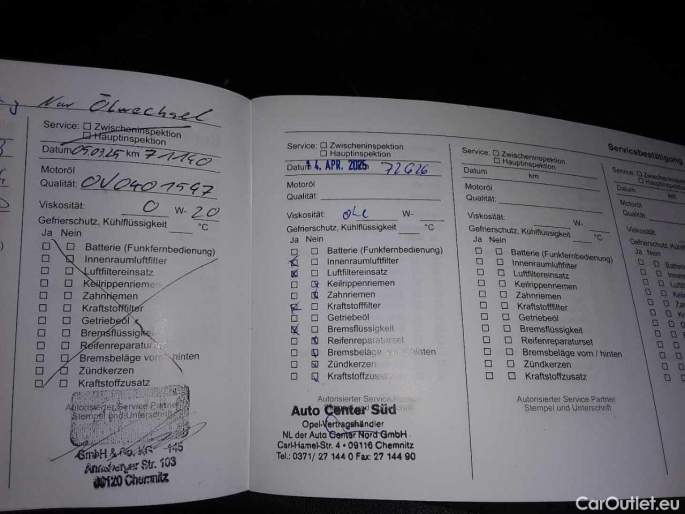 Nur Ölwechsel
Service: Zwischeninspektion
Hauptinspektion
Datum 05.03.25 km 71140
Motoröl
Qualität: OV0401547
Viskosität: 0 W- 20
Gefrierschutz, Kühlflüssigkeit °C
Ja Nein
Batterie (Funkfernbedienung)
Innenraumluftfilter
Luftfiltereinsatz
Keilrippenriemen
Zahnriemen
Kraftstofffilter
Getriebeöl
Bremsflüssigkeit
Reifenreparaturset
Bremsbeläge vorn / hinten
Zündkerzen
Kraftstoffzusatz
Autorisierter Service Partner
Stempel und Unterschrift
GmbH & Co. KG
Annaberger Str. 103
09120 Chemnitz
Service: Zwischeninspektion
Hauptinspektion
Datum 14. APR. 2025 72626
Motoröl
Qualität:
Viskosität: W-
Gefrierschutz, Kühlflüssigkeit °C
Ja Nein
Batterie (Funkfernbedienung)
Innenraumluftfilter
Luftfiltereinsatz
Keilrippenriemen
Zahnriemen
Kraftstofffilter
Getriebeöl
Bremsflüssigkeit
Reifenreparaturset
Bremsbeläge vorn / hinten
Zündkerzen
Kraftstoffzusatz
Autorisierter Service
Auto Center Süd
Opel-Vertragshändler
NL der Auto Center Nord GmbH
Carl-Hamel-Str. 4 · 09116 Chemnitz
Tel.: 0371/ 27 144 0 Fax: 27 144 90
Servicebestätigung
Service: Zwischeninspektion
Hauptinspektion
Datum km
Motoröl
Qualität:
Viskosität: W-
Gefrierschutz, Kühlflüssigkeit °C
Ja Nein
Batterie (Funkfernbedienung)
Innenraumluftfilter
Luftfiltereinsatz
Keilrippenriemen
Zahnriemen
Kraftstofffilter
Getriebeöl
Bremsflüssigkeit
Reifenreparaturset
Bremsbeläge vorn / hinten
Zündkerzen
Kraftstoffzusatz
Autorisierter Service Partner
Stempel und Unterschrift
Service:
Datum
Motoröl
Qualität:
Viskosität:
Gefrierschutz,
Ja Nein
CarOutlet.eu